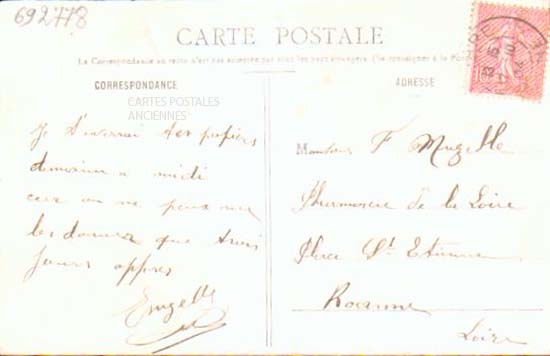 692778
CARTE POSTALE
La Correspondance au recto n'est pas acceptée par tous les pays étrangers. (Se renseigner à la Poste)
CORRESPONDANCE
CARTES POSTALES
ANCIENNES
Je t'enverrai tes papiers
demain a midi
car on ne peux me
les donner que trois
jours appres
ADRESSE
Monsieur F Mugelle
Pharmacie de la Loire
Place St Etienne
Roanne
Loire